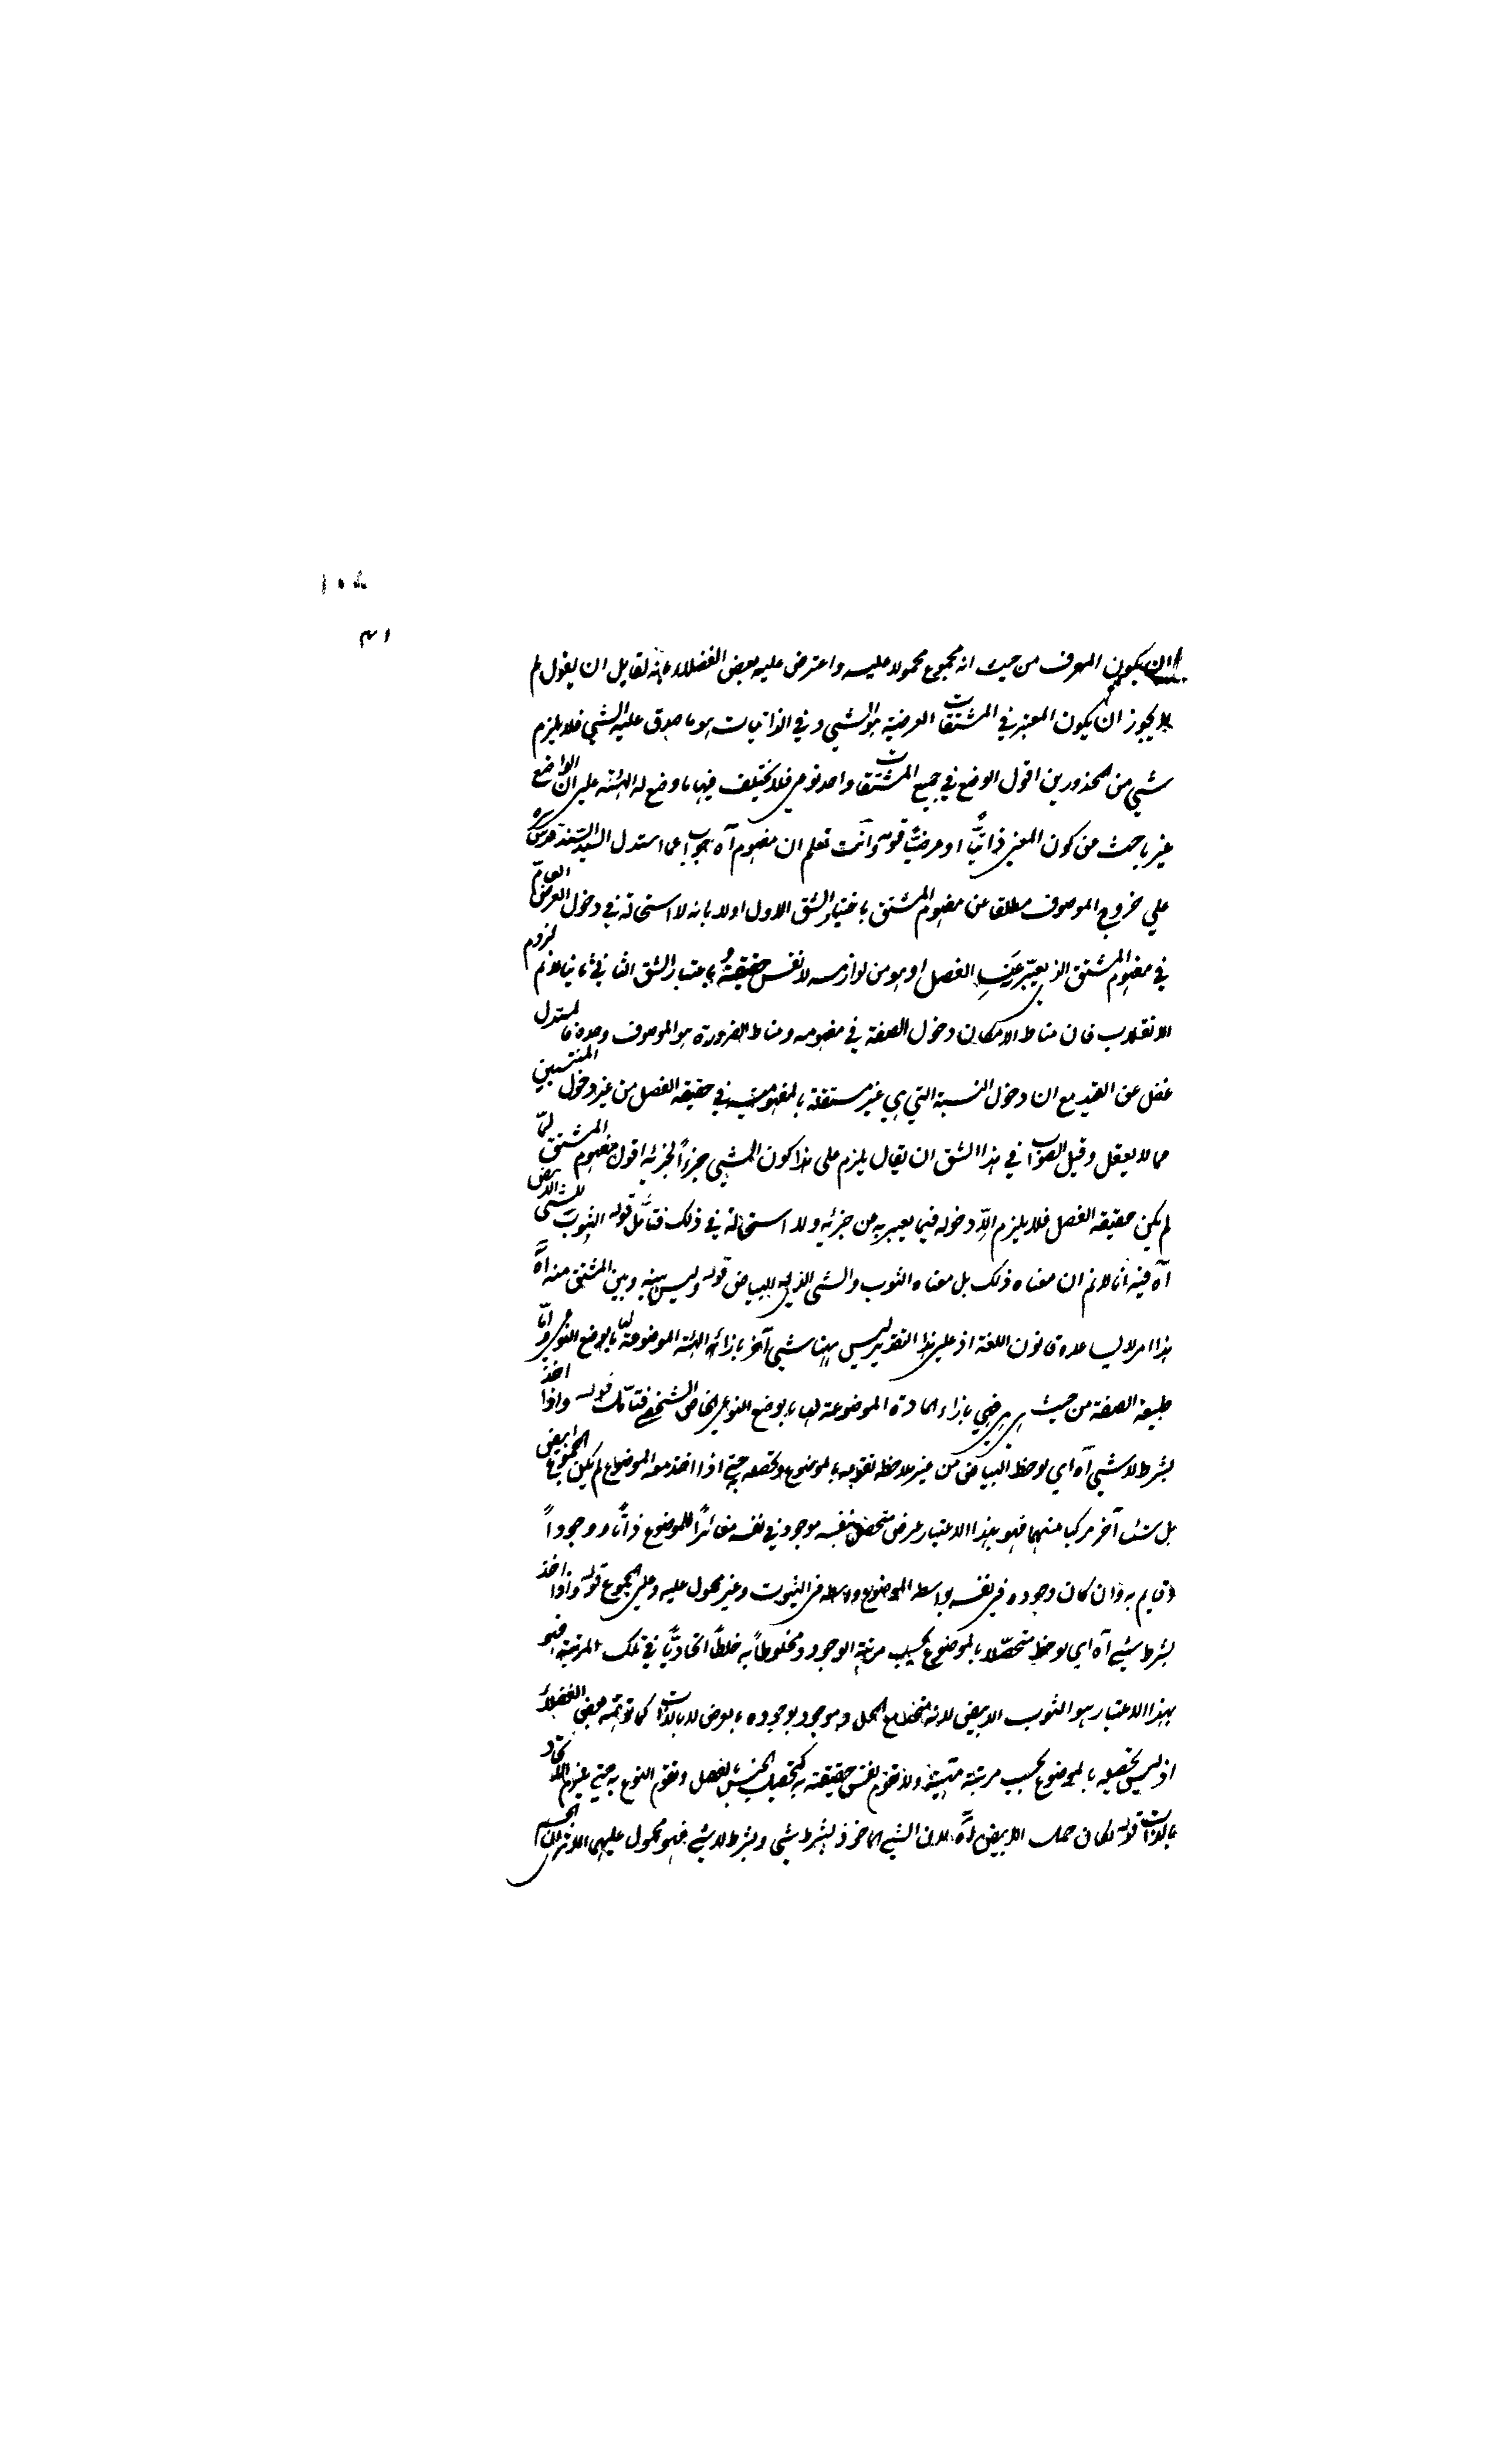 ١٠٨
٤١
ان يكون المعرف من حيث انه مجموع محمولا عليه واعترض عليه بعض الفضلاء بانه لقايل ان يقول لم
لا يجوز ان يكون المعتبر في المشتقات العرضية هو الشيء وفي الذاتيات هو ما صدق عليه الشيء فلا يلزم
شيء من المحذورين اقول الوضع في جميع المشتقات واحد نوعي فلا يختلف فيها ما وضع له الهيئة على ان الواضع
غير باحث عن كون المعنى ذاتيًا او عرضيًا قوله وانت تعلم ان مفهوم آه جواب عما استدل السيد السند قدس سره
على خروج الموصوف مطلقا عن مفهوم المشتق باختيار الشق الاول اولا بانه لا استحالة في دخول العرض العام
في مفهوم المشتق الذي يعبر به عن الفصل او هو من لوازمه لا نفس حقيقته وباعتبار الشق الثاني ثانيا لانم لزوم
الانقلاب فان مناط الامكان دخول الصفة في مفهومه ومناط الضرورة هو الموصوف وحده فالمستدل
غفل عن القيد مع ان دخول النسبة التي هي غير مستقلة بالمفهومية في حقيقة الفصل من غير دخول المنتسبين
مما لا يعقل وقيل الصواب في هذا الشق ان يقال يلزم على هذا كون الشيء جزءاً لجزئه اقول مفهوم المشتق لمّا
لم يكن حقيقة الفصل فلا يلزم الا دخوله فيما يعبر به عن جزئه ولا استحالة في ذلك فتأمل قوله الثوب الشيء الابيض
آه فيه انا لانم ان معناه ذلك بل معناه الثوب والشيء الذي له البياض قوله وليس بينه وبين المشتق منه آه
هذا امر لا يساعده قانون اللغة اذ على هذا التقدير ليس ههنا شيء آخر بازاء الهيئة الموضوعة لها بالوضع النوعي وامّا
طبيعة الصفة من حيث هي هي فهي بازاء المادة الموضوعة لها بالوضع النوعي الخاص الشخصي فتأمل قوله واذا اخذ
بشرط لا شيء آه اي لوحظ البياض من غير ملاحظة تقومه بالموضوع وتحصله به حتى اذا اخذ معه الموضوع لم يكن المجموع ابيض
بل شيئا آخر مركبا منهما فهو بهذا الاعتبار عرض متحصل بنفسه موجود في نفسه مغائرًا للموضوع ذاتًا ووجوداً
وقايم به وان كان وجوده في نفسه بواسطة الموضوع واسطة في الثبوت وغير محمول عليه وعلى المجموع قوله واذا اخذ
بشرط شيء آه اي لوحظ متحصّلا بالموضوع بحسب مرتبة الوجود ومخلوطاً به خلطًا اتحاديًا في تلك المرتبة فهو
بهذا الاعتبار هو الثوب الابيض لانه متحد مع المحل وموجود بوجوده بالعرض لا بالذات كما توهمه بعض الفضلاء
اذ ليس تحصيله بالموضوع بحسب مرتبة مهيته ولا تقوم نفس حقيقته به كتحصيل الجنس بالفصل وتقوم النوع به حتى يلزم الاتحاد
بالذات قوله لكان حمل الابيض آه لان الشيء الماخوذ بشرط شيء وبشرط لا شيء فهو محمول عليهما الجسم